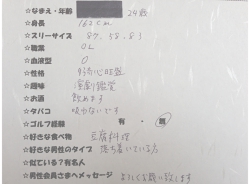 ★なまえ・年齢 24歳
★身長 162cm
★スリーサイズ 87.58.83
★職業 OL
★血液型 O
★性格 好奇心旺盛
★趣味 演劇鑑賞
★お酒 飲めます
★タバコ 吸わないです
★ゴルフ経験 有・無
★好きな食べ物 豆腐料理
★好きな男性のタイプ 落ち着いている方
★似ている?有名人
★男性会員さまへメッセージ よろしくお願い致します